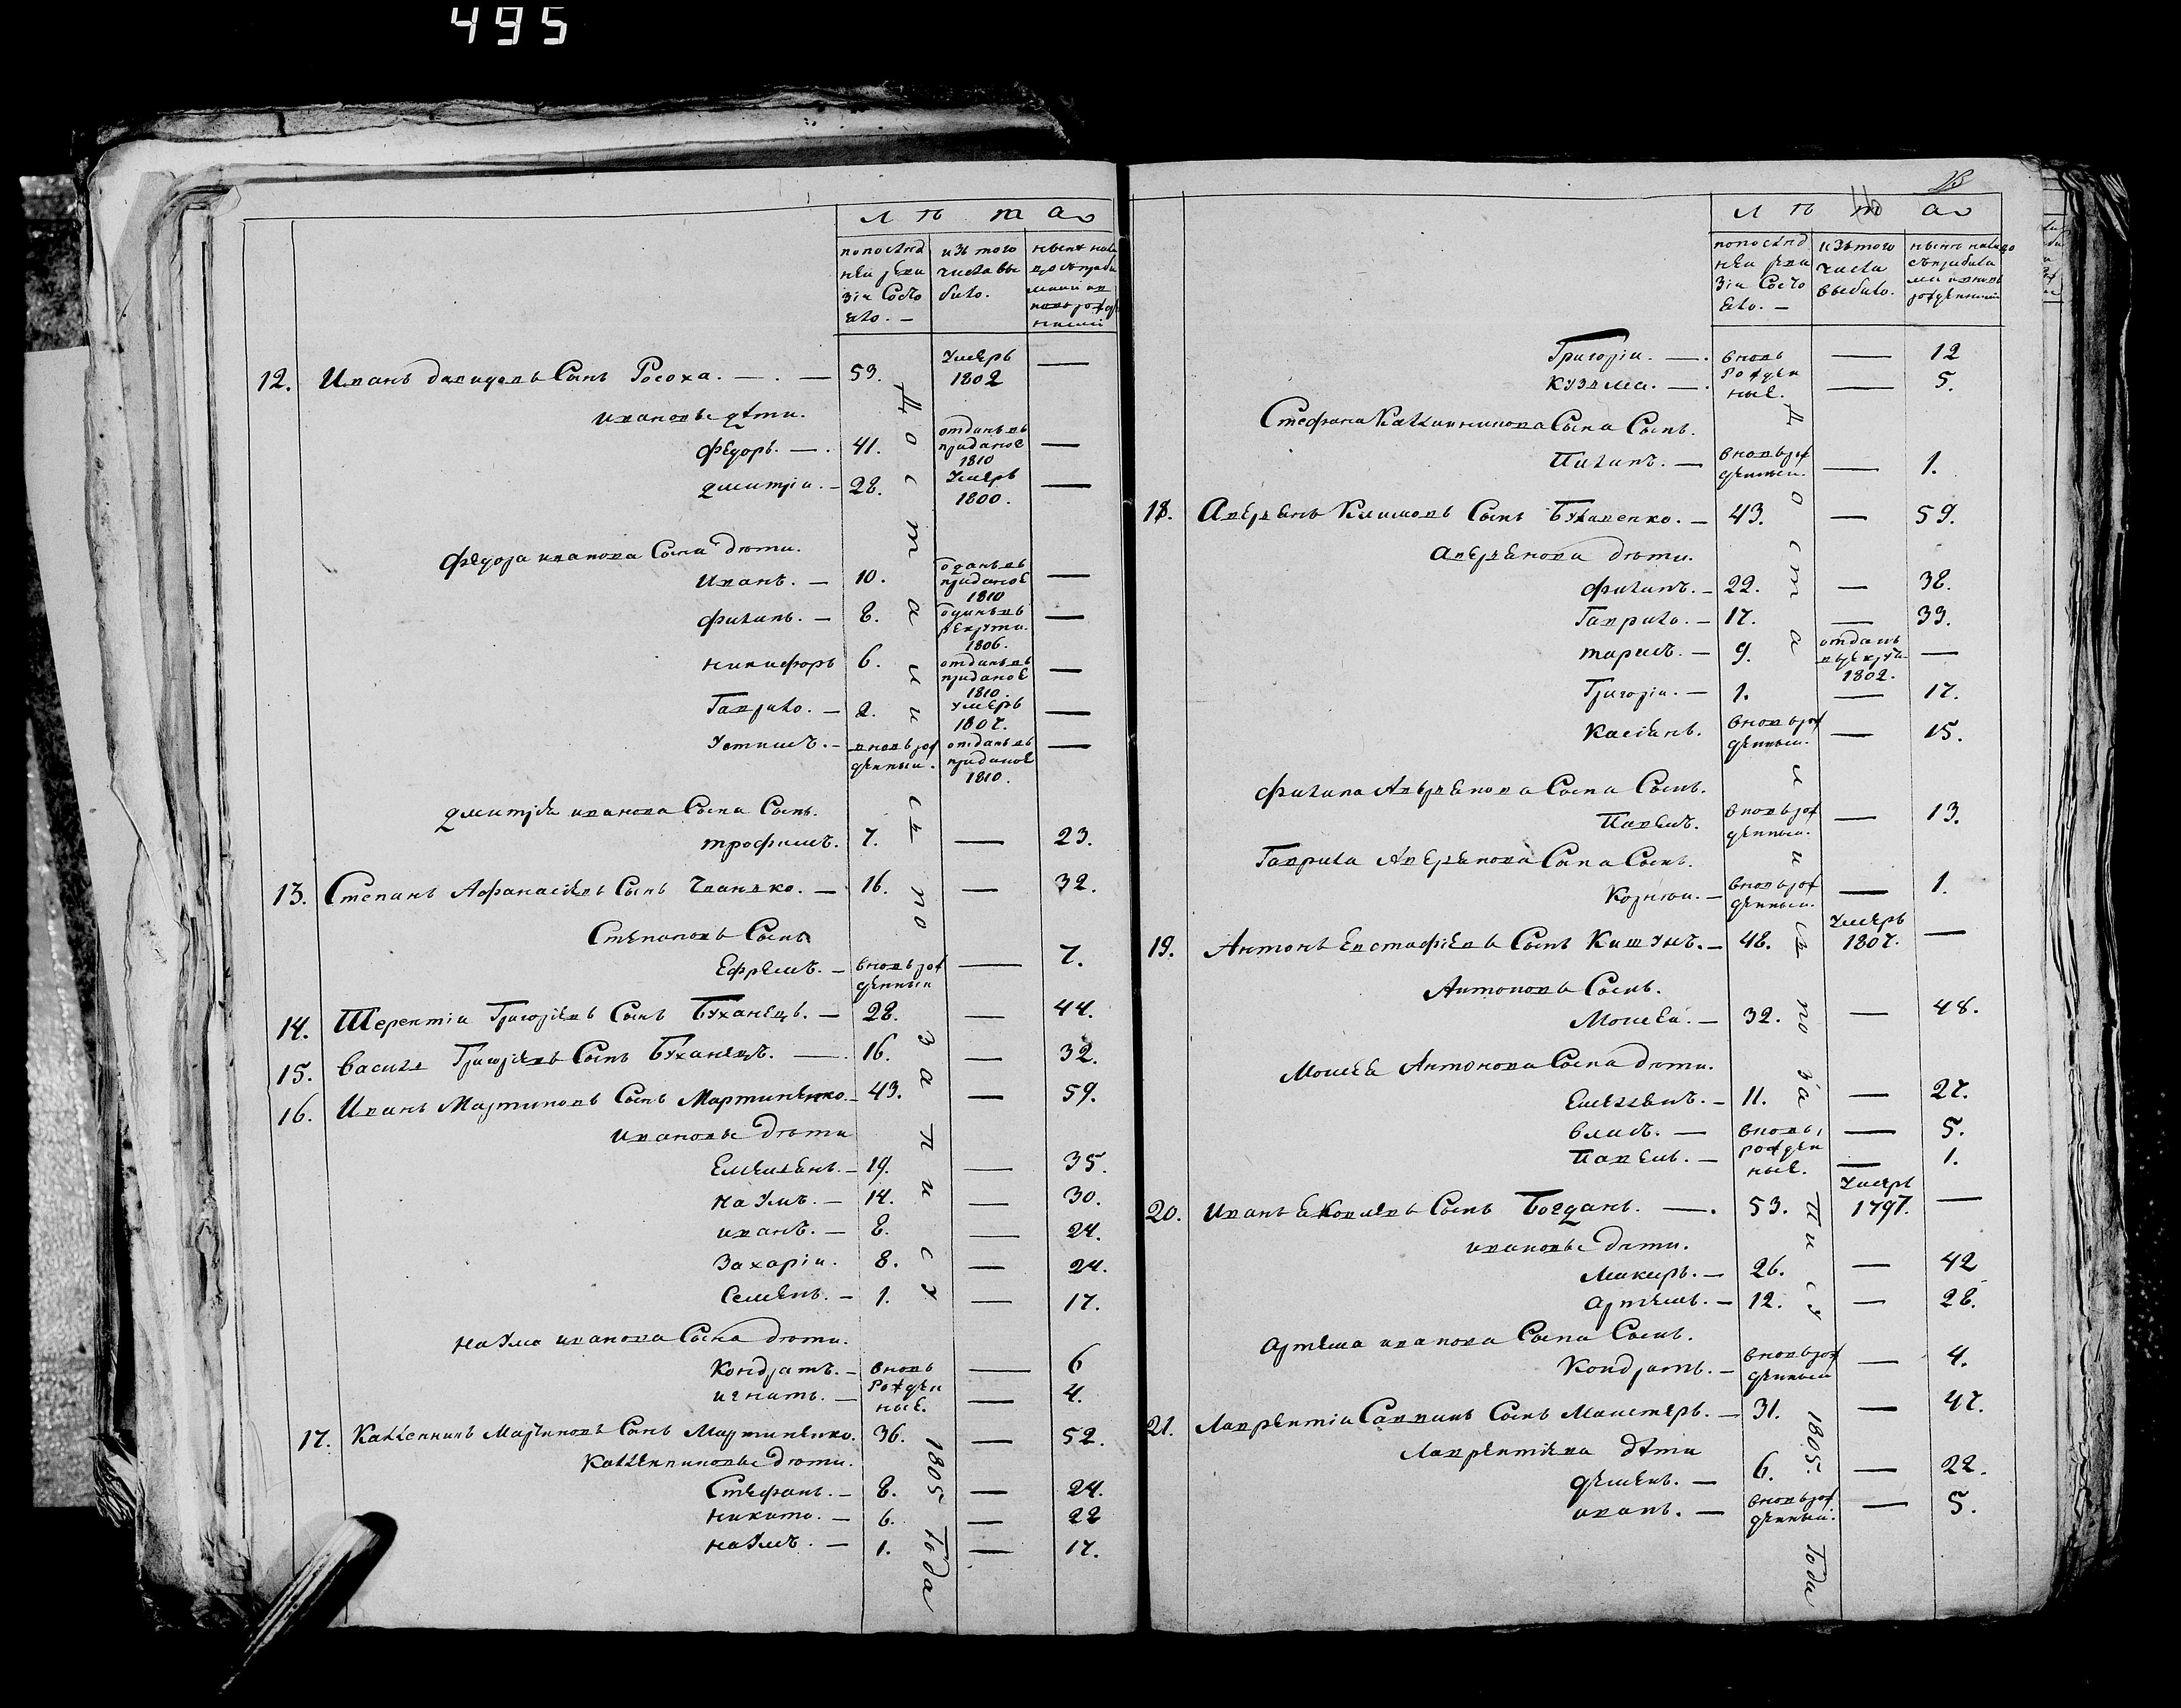 495
лѣта
по последней ревизіи состояло. —
изъ того числа выбыло.
12. Иванъ давидовъ Сынъ Росоха. — 53. Умеръ 1802 —
ивановы дѣти.
Федоръ. — 41. отданъ въ приданое 1810 —
дмитрій. — 28. Умеръ 1800. —
федора иванова Сына дѣти.
иванъ. — 10. оданъ въ приданое 1810 —
филипъ. — 8. 1806. —
никифоръ 6. отданъ въ приданое 1810. —
Гаврило. — 2. умеръ 1807. —
Устимъ. — вновь рожденный. отданъ въ приданое 1810. —
дмитрія иванова Сына Сынъ.
трофимъ. 7. — 23.
13. Степанъ Афанасіевъ Сынъ — 16. — 32.
Степановъ Сынъ
Ефремъ. — вновь рожденный — 7.
14. Терентій Григоріевъ Сынъ Буханецъ. — 28. — 44.
15. Василь Григоріевъ Сынъ Буханецъ. — 16. — 32.
16. Иванъ Мартиновъ Сынъ Мартиненко. — 43. — 59.
ивановы дѣти
Емельянъ. — 19. — 35.
наумъ. — 14. — 30.
иванъ. — 8. — 24.
Захарій. 8. — 24.
Семенъ. — 1. — 17.
наума иванова Сына дѣти.
Кондратъ. — вновь рожденные. — 6
игнатъ. — — 4.
17. Калленникъ Мартиновъ Сынъ Мартиненко. 36. — 52.
Калленниковы дѣти.
Стефанъ. — 8. — 24.
никита. — 6. — 22
наумъ. — 1. — 17.
До стали съ по запису 1805 Года
лѣта
по последней ревизіи состояло. —
изъ того числа выбыло.
Григорій. — вновь рожденные. — 12
кузьма. — — 5.
Стефана Калленникова Сына Сынъ.
Пилипъ. — вновь рожденный. — 1.
18. Аверьянъ Климовъ Сынъ — 43. — 59.
аверьянова дѣти.
филипъ. — 22. — 38.
Гаврило. — 17. — 33.
тарасъ. — 9. отданъ в рекруты 1802. —
Григорій. — 1. — 17.
Касіянъ. вновь рожденный. — 15.
филипа Аверьянова Сына Сынъ.
Павелъ. вновь рожденный. — 13.
Гаврила Аверьянова Сына Сынъ.
Корній. — вновь рожденный. — 1.
19. Антонъ Евстафіевъ Сынъ — 48. Умеръ 1807. —
Антоновъ Сынъ.
Моисей. — 32. — 48.
Моисея Антонова Сына дѣти.
Емельянъ. — 11. — 27.
власъ. — вновь рожденные. — 5.
Павелъ. — — 1.
20. Иванъ Яковлевъ Сынъ Богданъ. — 53. Умеръ 1797. —
ивановы дѣти.
Макаръ. — 26. — 42
артемъ. — 12. — 28.
артема иванова Сына Сынъ.
Кондратъ. — вновь рожденный — 4.
21. Лаврентій Саввинъ Сынъ Маистеръ. — 31. — 47.
Лаврентіева дѣти
демянъ. — 6. — 22.
иванъ. — вновь рожденный. — 5.
До стали съ по запису 1805. Года